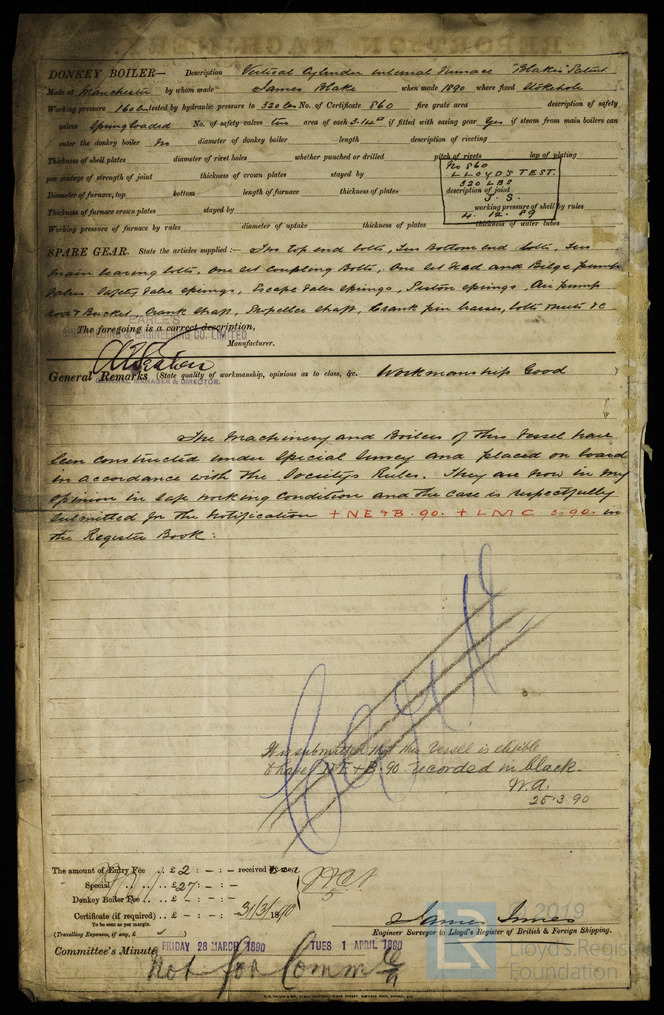 DONKEY BOILER— Description Vertical Cylinder internal Furnace "Blakes" Patent
Made at Manchester by whom made James Blake when made 1890 where fixed Stokehole
Working pressure 160 lbs tested by hydraulic pressure to 320 lbs No. of Certificate 860 fire grate area description of safety
valves Spring loaded No. of safety valves two area of each 3.14" if fitted with easing gear Yes if steam from main boilers can
enter the donkey boiler No diameter of donkey boiler length description of riveting
Thickness of shell plates diameter of rivet holes whether punched or drilled pitch of rivets lap of plating
per centage of strength of joint thickness of crown plates stayed by
Diameter of furnace, top bottom length of furnace thickness of plates description of joint
Thickness of furnace crown plates stayed by working pressure of shell by rules
Working pressure of furnace by rules diameter of uptake thickness of plates thickness of water tubes
No 860
LLOYD'S TEST.
320 LBS
J. S.
4. 12. 89
SPARE GEAR. State the articles supplied:— Two top end bolts, Two Bottom end bolts, Two
main bearing bolts, One set coupling Bolts, One set Feed and Bilge pump
Valves. Safety Valve springs, Escape Valve springs, Piston springs, Air pump
rod & Bucket, Crank Shaft, Propeller Shaft, Crank pin brasses, bolts & nuts &c
The foregoing is a correct description,
EARLE'S
SHIPBUILDING & ENGINEERING CO. LIMITED
Manufacturer.
MANAGER & DIRECTOR.
General Remarks (State quality of workmanship, opinions as to class, &c. Workmanship Good
The Machinery and Boilers of this Vessel have
been constructed under Special Survey and placed on board
in accordance with the Society's Rules. They are now in my
opinion in safe working condition and the case is respectfully
submitted for the Notification + NE & B. 90. + LMC 3.90. in
the Register Book:
It is submitted that this Vessel is eligible
to have NE & B. 90 recorded in black.
25.3.90
The amount of Entry Fee .. £ 2 : - : - received by me
Special .. .. £ 27 : - : -
Donkey Boiler Fee .. £ - : - : -
Certificate (if required) .. £ - : - : - 31/3/1890
To be sent as per margin.
(Travelling Expenses, if any, £ )
James Innes
Engineer Surveyor to Lloyd's Register of British & Foreign Shipping.
Committee's Minute FRIDAY 28 MARCH 1890 TUES 1 APRIL 1890
Not for Committee
© 2019
Lloyd's Register
Foundation